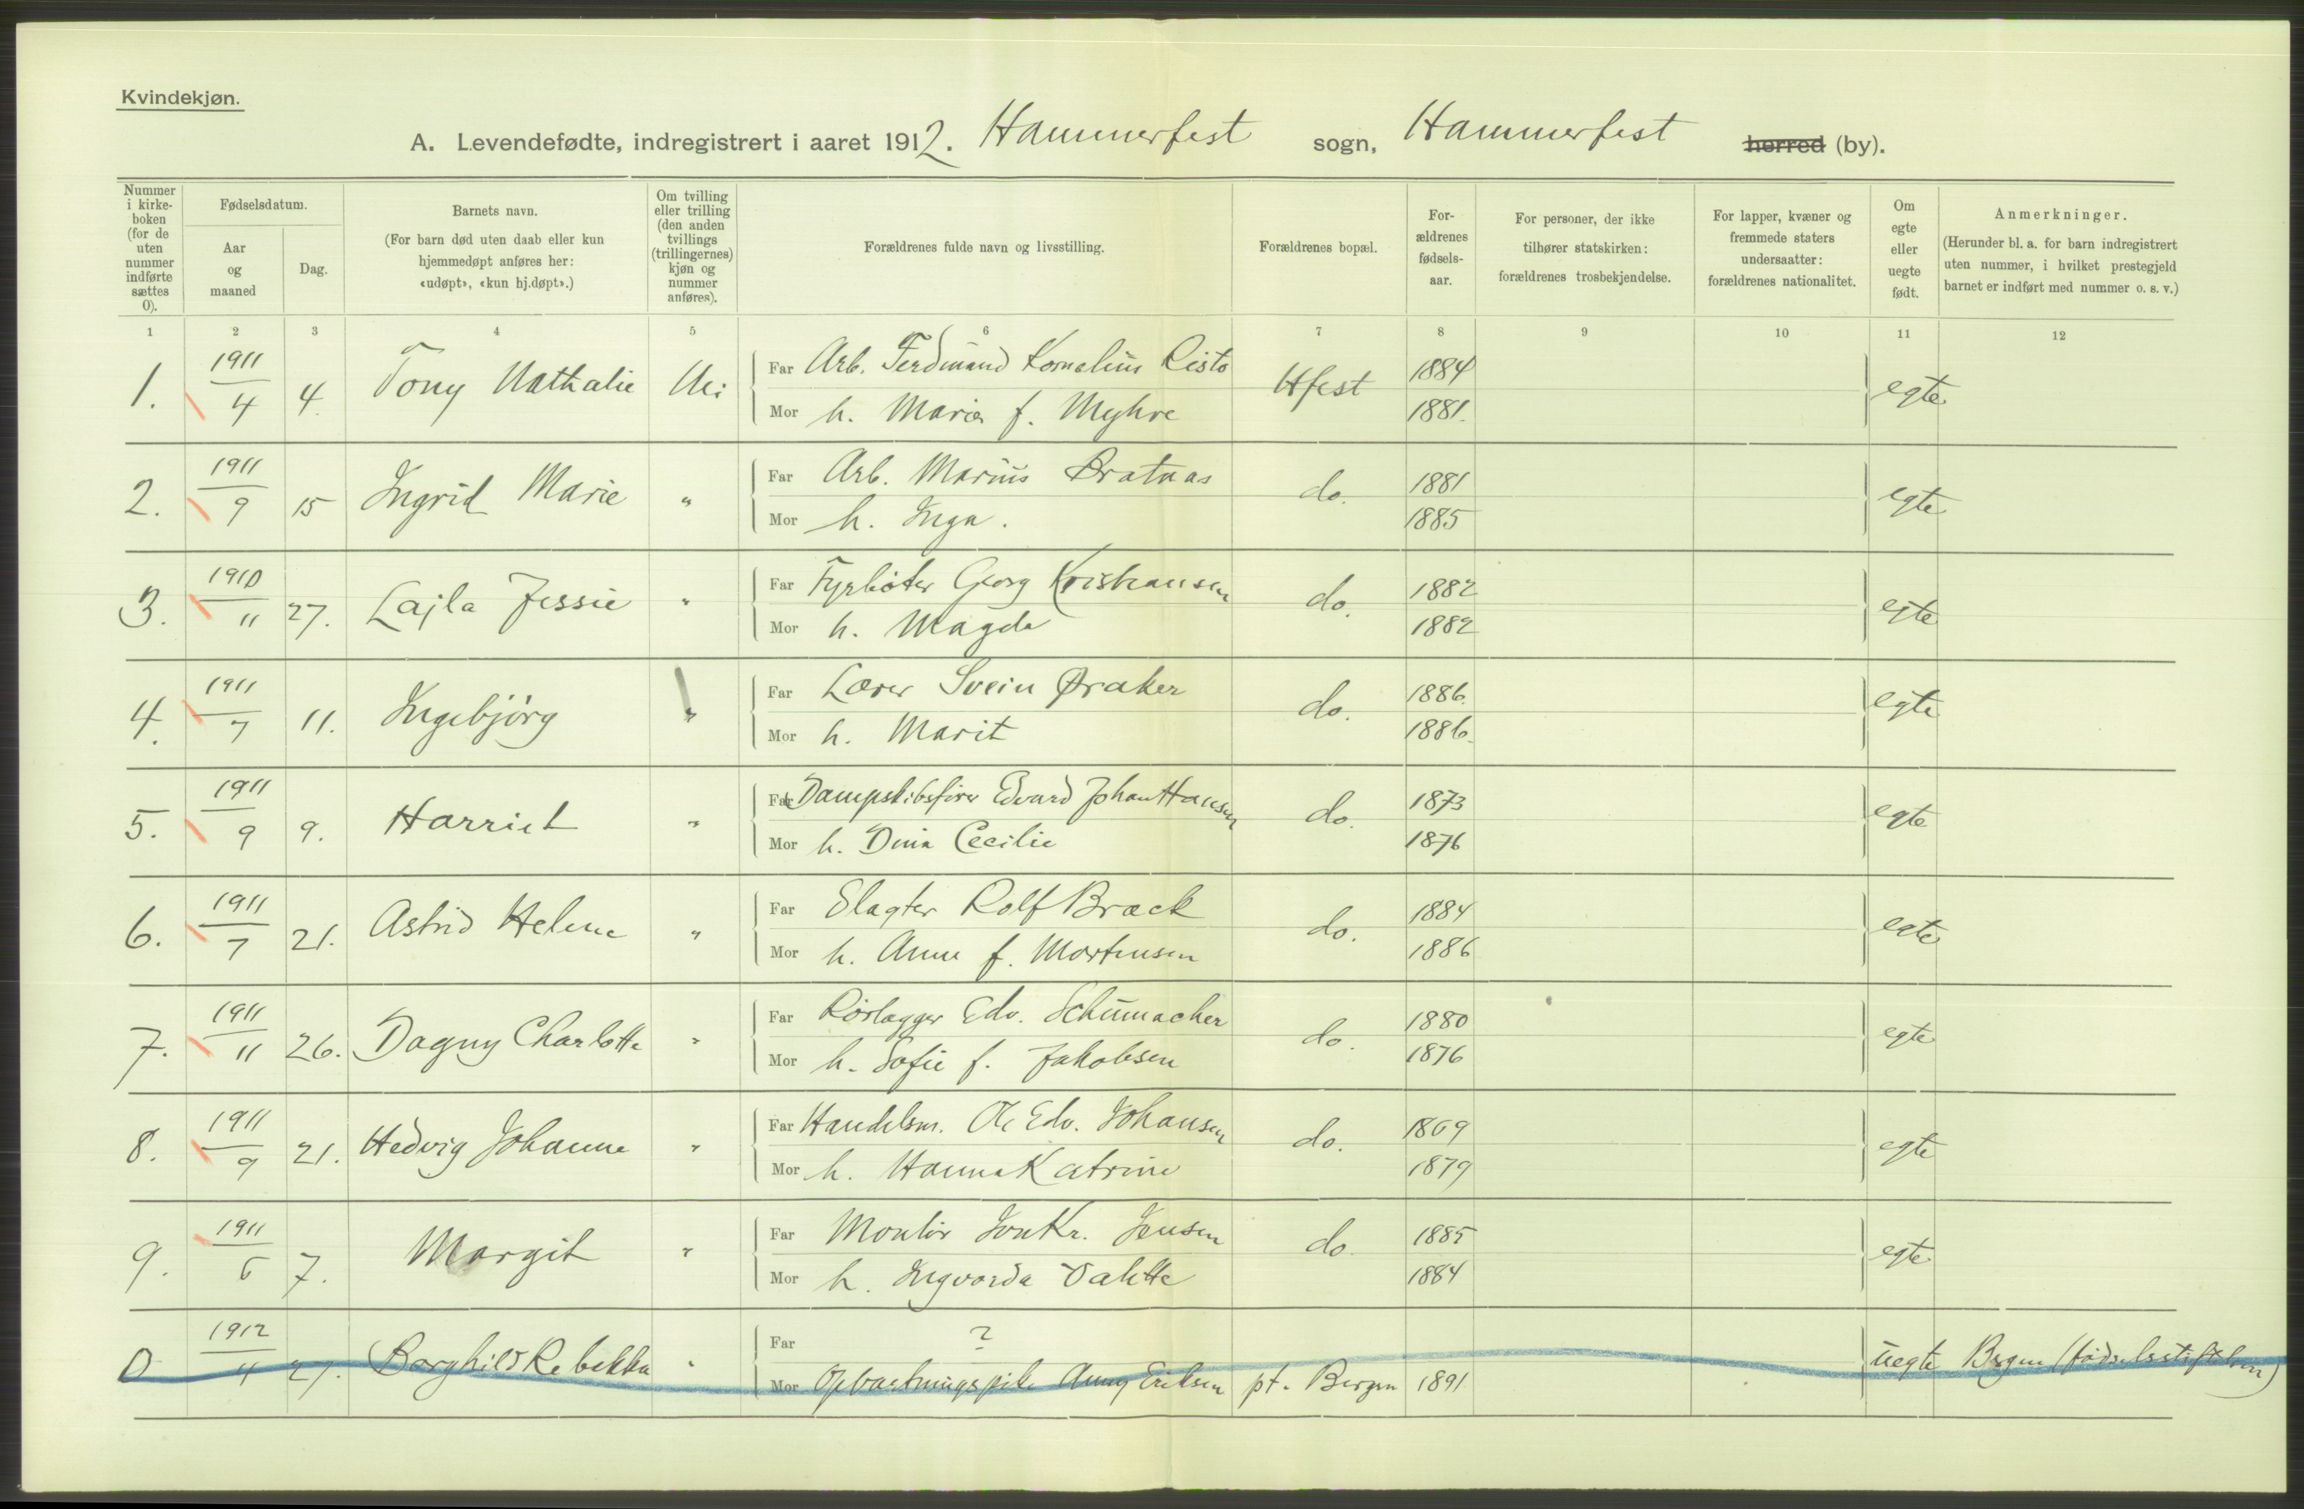 Kvindekjøn.
A. Levendefødte, indregistrert i aaret 1912. Hammerfest sogn, Hammerfest herred (by).
Nummer i kirke-boken (for de uten nummer indførte sættes 0).
Fødselsdatum.
Aar og maaned
Dag.
Barnets navn.
(For barn død uten daab eller kun hjemmedøpt anføres her: «udøpt», «kun hj.døpt».)
Om tvilling eller trilling (den anden tvillings (trillingernes) kjøn og nummer anføres).
Forældrenes fulde navn og livsstilling.
Forældrenes bopæl.
For-ældrenes fødsels-aar.
For personer, der ikke tilhører statskirken: forældrenes trosbekjendelse.
For lapper, kvæner og fremmede staters undersaatter: forældrenes nationalitet.
Om egte eller uegte født.
Anmerkninger.
(Herunder bl. a. for barn indregistrert uten nummer, i hvilket prestegjeld barnet er indført med nummer o. s. v.)
1 2 3 4 5 6 7 8 9 10 11 12
1. 1911/4 4. Tony Nathalie Nei Far Arb. Ferdinand Kornelius Risto Hfest 1884 egte
Mor h. Marie f. Myhre 1881.
2. 1911/9 15 Ingrid Marie " Far Arb. Marius Brataas do. 1881 egte
Mor h. Inga. 1885
3. 1910/11 27. Lajla Jessie " Far Fyrbøter Georg Kristiansen do. 1882 egte
Mor h. Magda 1882
4. 1911/7 11. Ingebjörg " Far Lærer Svein Øraker do. 1886. egte
Mor h. Marit 1886.
5. 1911/9 9. Harriet " Far Dampskibsfører Edvard Johan Hansen do. 1873 egte
Mor h. Dina Cecilie 1876
6. 1911/7 21. Astrid Helene " Far Slagter Rolf Brack do. 1884 egte
Mor h. Anna f. Mortensen 1886
7. 1911/11 26. Dagny Charlotte " Far Rörlægger Edv. Schumacher do. 1880 egte
Mor h. Sofie f. Jakobsen 1876
8. 1911/9 21. Hedvig Johanne " Far Handelsm. Ole Edv. Johansen do. 1869 egte
Mor h. Hanna Katrine 1879
9. 1911/6 7. Margit " Far Montör Jon Kr. Jensen do. 1885 egte
Mor h. Ingvarda 1884
0 1912/11 27. Borghild Rebekka " Far ? uegte Bergen (fødselsstiftelsen)
Mor Opvartningspike Anny Eriksen pt. Bergen 1891